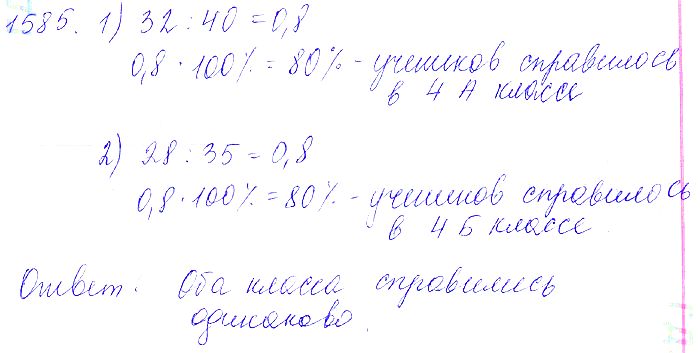 1585. 1) 32 : 40 = 0,8
0,8 · 100% = 80% - учеников справилось
в 4 А классе
2) 28 : 35 = 0,8
0,8 · 100% = 80% - учеников справилось
в 4 Б классе
Ответ: Оба класса справились
одинаково.